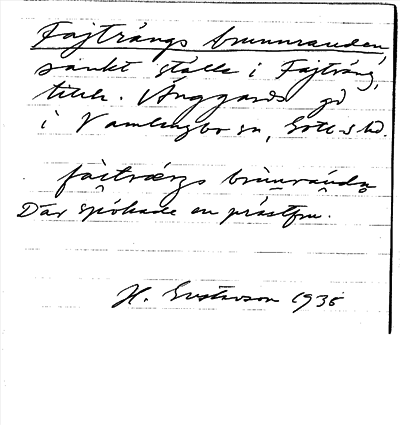 Fajträngs brunnranden,
sänkt ställe i Fajträng,
tillh. Anggards gd
i Vamlingbo sn, Gotl-s hd.
fàitræŋs brùnrándn
Där spökade en prästfru.
H. Gustavson 1935